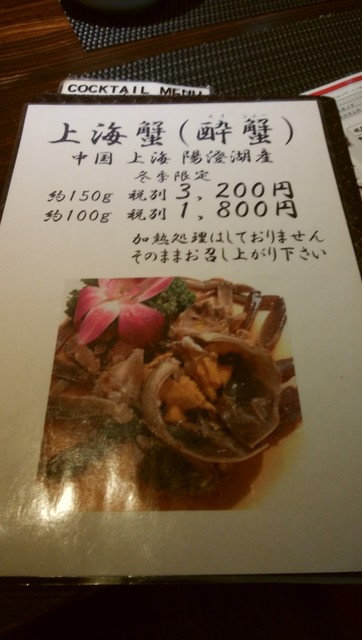 COCKTAIL MENU
上海蟹(酔蟹)
中国 上海 陽澄湖産
冬季限定
約150g 税別 3,200円
約100g 税別 1,800円
加熱処理はしておりません
そのままお召し上がり下さい